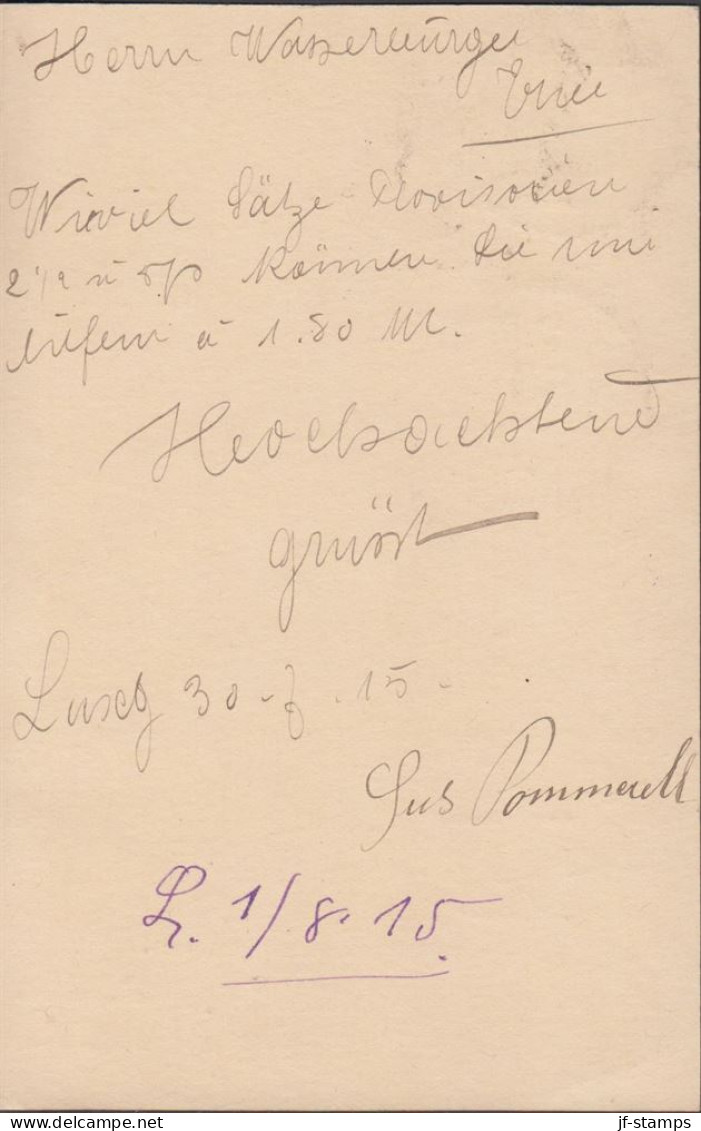 Herrn Wasserburger
Trier
Wieviel Sätze Provisorien
2½ u 5/0 können Sie mir
liefern à 1.80 M.
Hochachtend
grüsst
Luxbg 30-7.15-
Gus Pommerell
L. 1/8.15.
jf-stamps